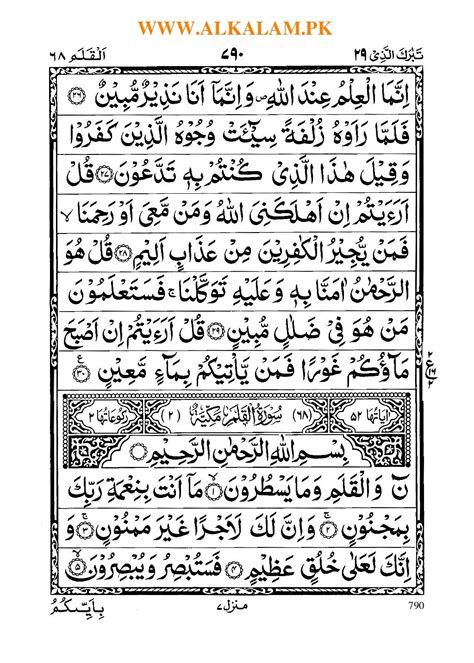 WWW.ALKALAM.PK
تَبٰرَكَ الَّذِیْ ۲۹
۷۹۰
اَلْقَلَم ۶۸
اِنَّمَا الْعِلْمُ عِنْدَ اللّٰهِ ۪ وَاِنَّمَاۤ اَنَا نَذِیْرٌ مُّبِیْنٌ ﴿۲۶﴾
فَلَمَّا رَاَوْهُ زُلْفَةً سِیْٓـَٔتْ وُجُوْهُ الَّذِیْنَ كَفَرُوْا
وَقِیْلَ هٰذَا الَّذِیْ كُنْتُمْ بِهٖ تَدَّعُوْنَ ﴿۲۷﴾ قُلْ
اَرَءَیْتُمْ اِنْ اَهْلَكَنِیَ اللّٰهُ وَمَنْ مَّعِیَ اَوْ رَحِمَنَا ۙ
فَمَنْ یُّجِیْرُ الْكٰفِرِیْنَ مِنْ عَذَابٍ اَلِیْمٍ ﴿۲۸﴾ قُلْ هُوَ
الرَّحْمٰنُ اٰمَنَّا بِهٖ وَعَلَیْهِ تَوَكَّلْنَا ۚ فَسَتَعْلَمُوْنَ
مَنْ هُوَ فِیْ ضَلٰلٍ مُّبِیْنٍ ﴿۲۹﴾ قُلْ اَرَءَیْتُمْ اِنْ اَصْبَحَ
مَآؤُكُمْ غَوْرًا فَمَنْ یَّاْتِیْكُمْ بِمَآءٍ مَّعِیْنٍ ﴿۳۰﴾
اٰیَاتُهَا ۵۲
(۶۸) سُوْرَةُ الْقَلَمِ مَكِّیَّةٌ (۲)
رُكُوْعَاتُهَا ۲
بِسْمِ اللّٰهِ الرَّحْمٰنِ الرَّحِیْمِ
نٓ وَالْقَلَمِ وَمَا یَسْطُرُوْنَ ﴿۱﴾ مَاۤ اَنْتَ بِنِعْمَةِ رَبِّكَ
بِمَجْنُوْنٍ ﴿۲﴾ وَاِنَّ لَكَ لَاَجْرًا غَیْرَ مَمْنُوْنٍ ﴿۳﴾ وَ
اِنَّكَ لَعَلٰی خُلُقٍ عَظِیْمٍ ﴿۴﴾ فَسَتُبْصِرُ وَیُبْصِرُوْنَ ﴿۵﴾
790
منزل ۷
بِاَیِّىكُمُ